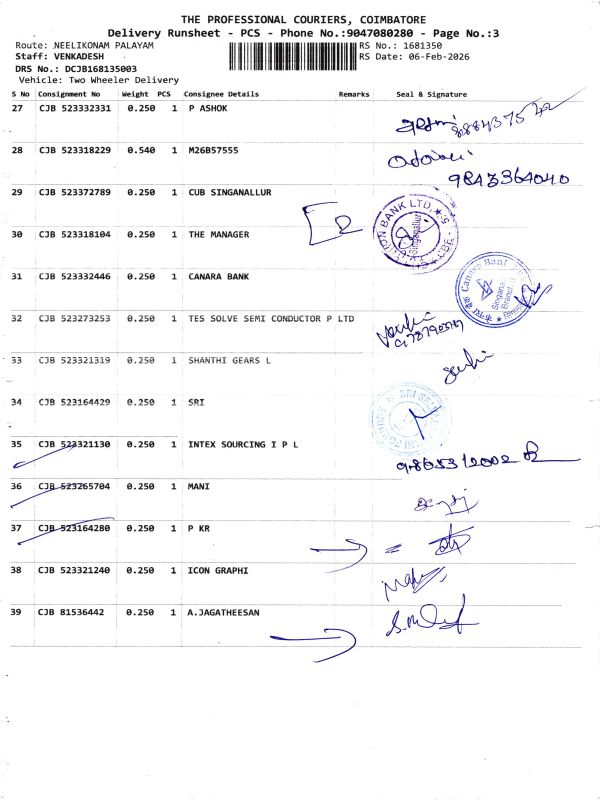 THE PROFESSIONAL COURIERS, COIMBATORE
Delivery Runsheet - PCS - Phone No.:9047080280 - Page No.:3
Route: NEELIKONAM PALAYAM RS No.: 1681350
Staff: VENKADESH RS Date: 06-Feb-2026
DRS No.: DCJB168135003
Vehicle: Two Wheeler Delivery
S No Consignment No Weight PCS Consignee Details Remarks Seal & Signature
27 CJB 523332331 0.250 1 P ASHOK
28 CJB 523318229 0.540 1 M26B57555
9843364040
29 CJB 523372789 0.250 1 CUB SINGANALLUR
30 CJB 523318104 0.250 1 THE MANAGER
31 CJB 523332446 0.250 1 CANARA BANK
32 CJB 523273253 0.250 1 TES SOLVE SEMI CONDUCTOR P LTD
33 CJB 523321319 0.250 1 SHANTHI GEARS L
34 CJB 523164429 0.250 1 SRI
35 CJB 523321130 0.250 1 INTEX SOURCING I P L
9865312002
36 CJB 523265704 0.250 1 MANI
37 CJB 523164280 0.250 1 P KR
38 CJB 523321240 0.250 1 ICON GRAPHI
39 CJB 81536442 0.250 1 A.JAGATHEESAN